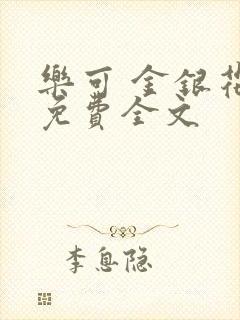 樂可 金銀花
免費全文
李息隐